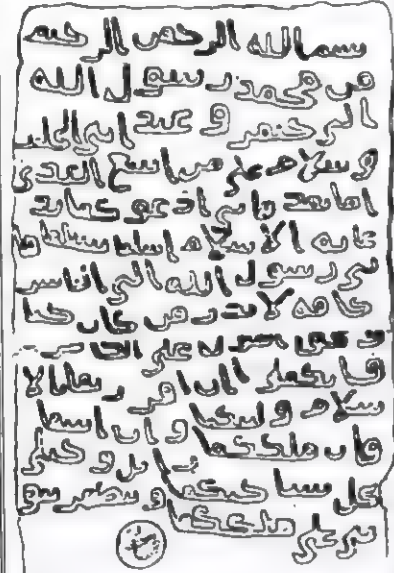 بسم الله الرحمن الرحيم
من محمد رسول الله
الى جيفر و عبد ابني الجلند
و سلام على من اتبع الهدى
اما بعد فاني ادعوكما بد
عايه الاسلام اسلما تسلما فا
ني رسول الله الى الناس
كافه لانذر من كان حيا
و يحق القول على الكافرين
فانكما ان اقررتما بالا
سلام وليتكما و ان ابيتما
فان ملككما زايل و خيلي
تحل بساحتكما و تظهر نبو
تي على ملككما